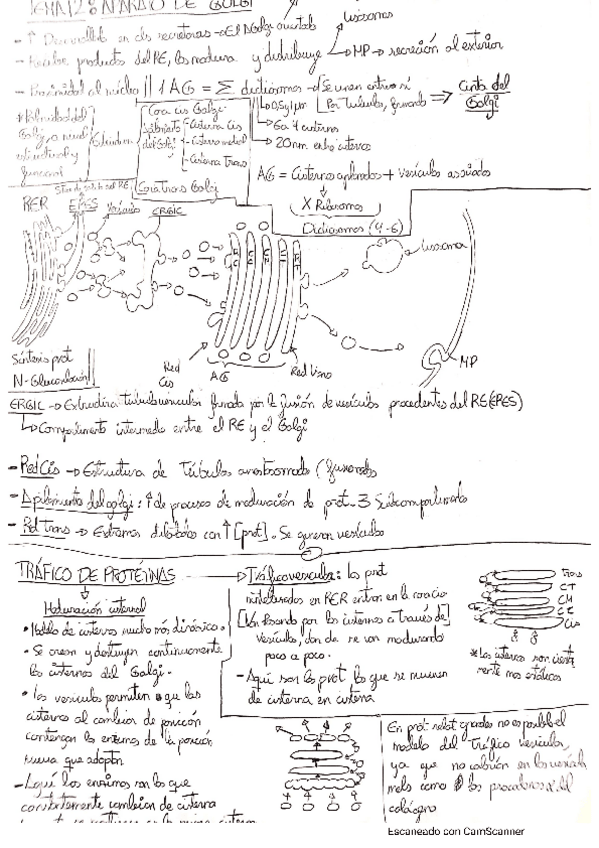 TEMA 12: APARATO DE GOLGI
- ↑ Desarrollado en cls secretoras → El AGolgi orientado
lisosomas
- Recibe productos del RE, los madura y distribuye → MP → secreción al exterior
- Proximidad al núcleo || 1 AG = Σ dictiosomas → Se unen entre sí
Por túbulos, formando ⇒ Cinta del Golgi
→ 0,5 y 1 µm
→ 6 a 7 cisternas
→ 20nm entre cisternas
* Polaridad del Golgi, a nivel estructural y funcional
Cara cis Golgi
Cisterna Cis
Cisterna medial
Cisterna Trans
Cara trans Golgi
AG = Cisternas aplanadas + vesículas asociadas
X Ribosomas
Dictiosomas (4-6)
RER EPES Vesículas ERGIC
lisosoma
MP
Síntesis prot
N-Glucosilación
Red Cis
AG
Red trans
ERGIC → Estructura tubulovesicular formada por la fusión de vesículas procedentes del RE (EPES)
↳ Compartimento intermedio entre el RE y el Golgi
- Red Cis → Estructura de Túbulos anastomosados
- Apilamiento del golgi: ↑ de procesos de maduración de prot. 3 Subcompartimentos
- Red trans → Extremos dilatados con ↑ [prot]. Se generan vesículas
TRÁFICO DE PROTEÍNAS
Maduración cisternal
• Modelo de cisternas mucho más dinámico.
• Se crean y destruyen continuamente
las cisternas del Golgi.
• Las vesículas permiten que las
cisternas al cambiar de posición
contengan las enzimas de la posición
nueva que adoptan
- Aquí las enzimas son las que
constantemente cambian de cisterna
→ Tráfico vesicular: las prot
sintetizadas en RER entran en la cara cis
Van pasando por las cisternas a través de
vesículas, donde se van modurando
poco a poco.
- Aquí son las prot las que se mueven
de cisterna en cisterna
Trans
CT
CM
CC
Cis
* las cisternas son
mente más estáticas
En prot relat grandes no es posible el
modelo del tráfico vesicular,
ya que no cabrían en las vesículas
como los procolágenos del
colágeno
Escaneado con CamScanner